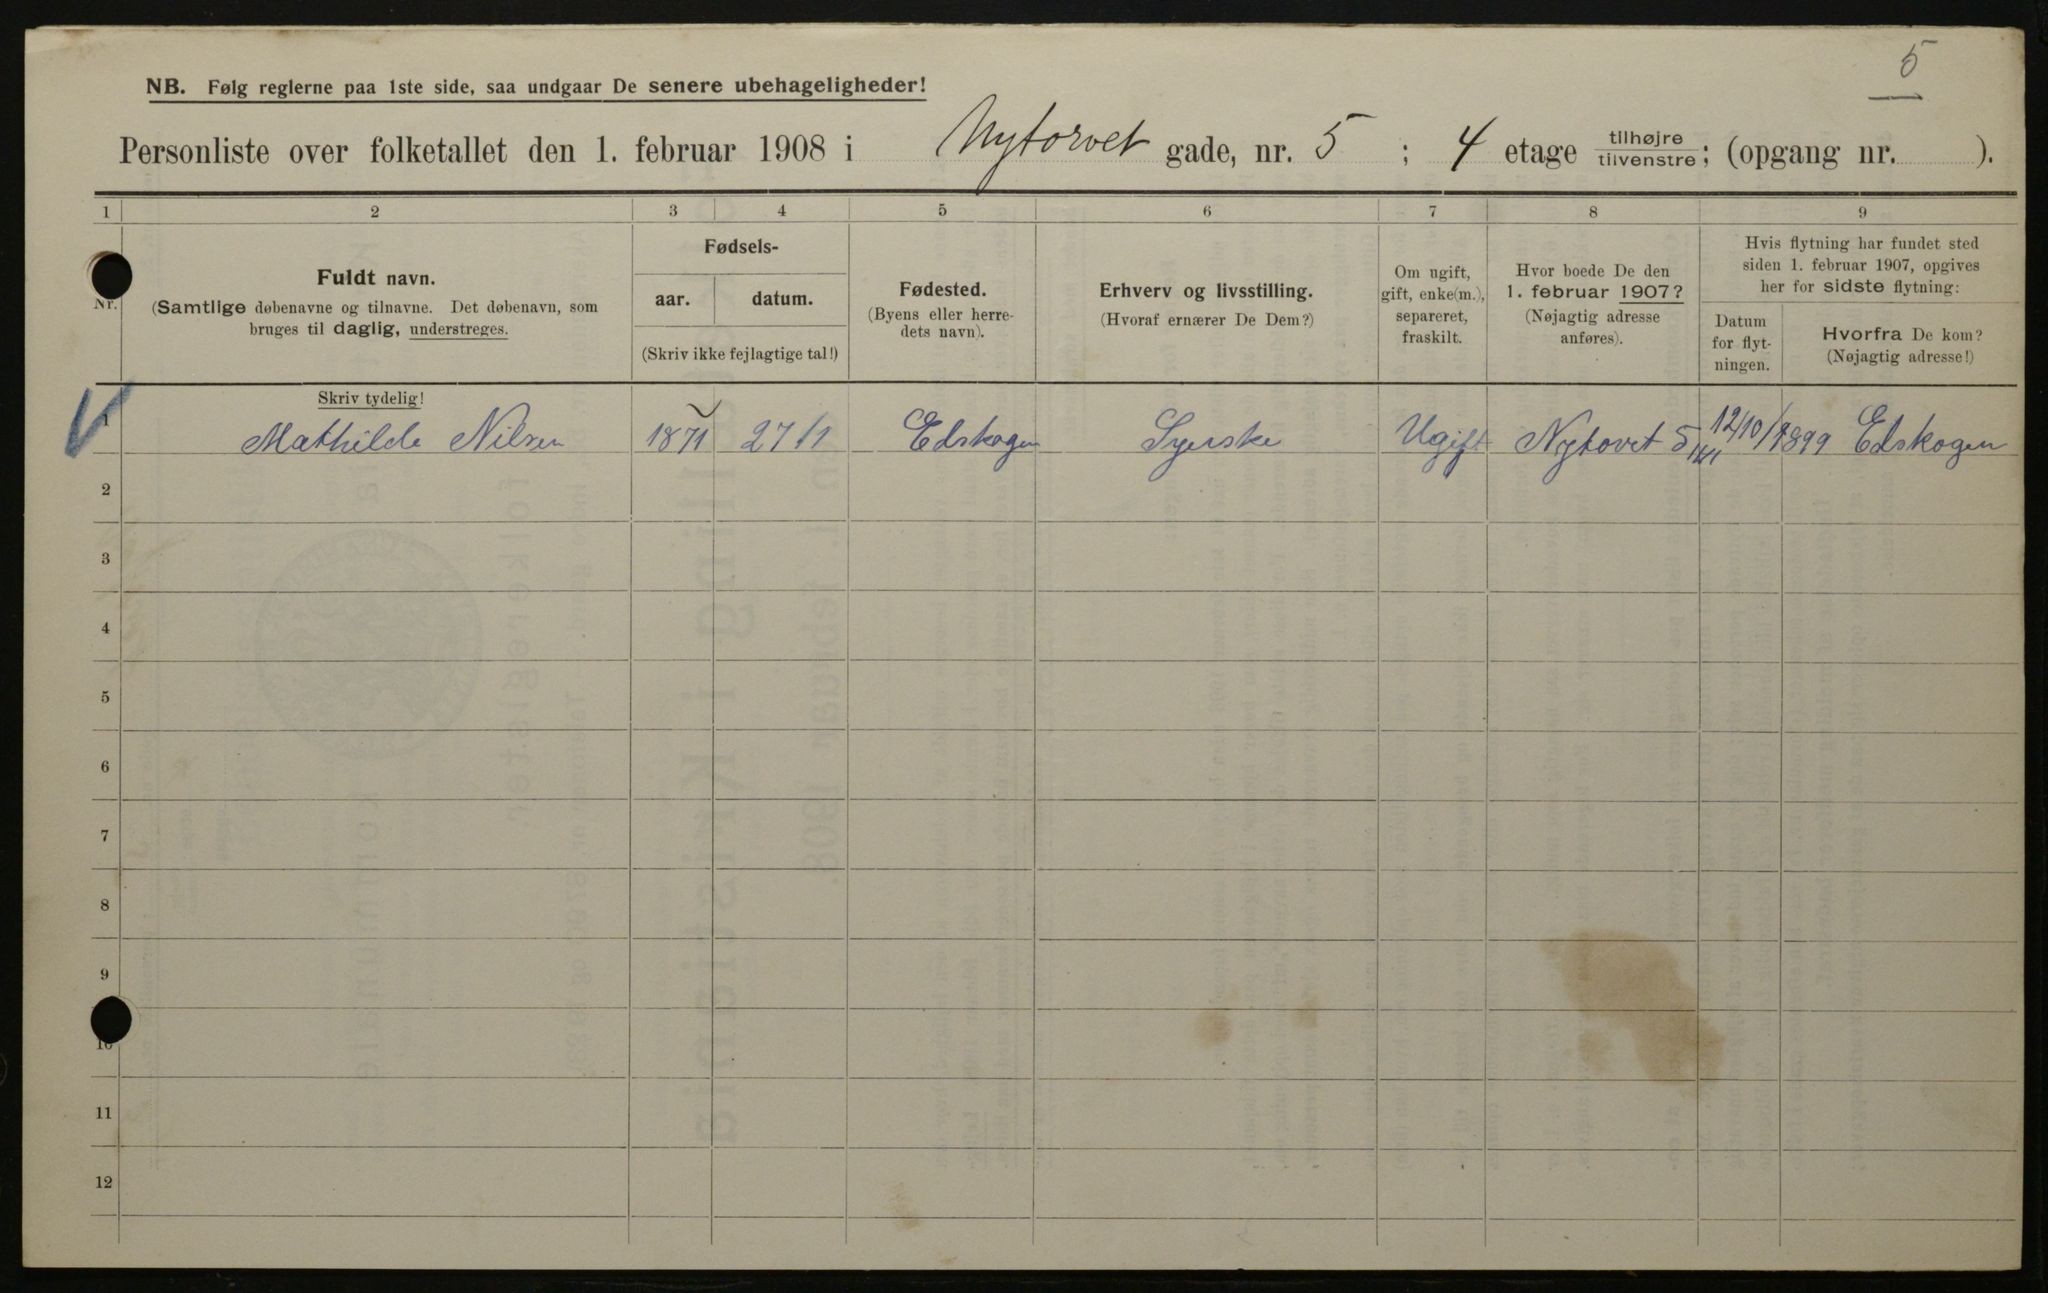 5
NB. Følg reglerne paa 1ste side, saa undgaar De senere ubehageligheder!
Personliste over folketallet den 1. februar 1908 i Nytorvet gade, nr. 5 ; 4 etage tilhøjre/tilvenstre; (opgang nr. ).
1 2 3 4 5 6 7 8 9
Nr.
Fuldt navn.
(Samtlige døbenavne og tilnavne. Det døbenavn, som
bruges til daglig, understreges.
Skriv tydelig!
Fødsels-
aar. datum.
(Skriv ikke fejlagtige tal!)
Fødested.
(Byens eller herre-
dets navn).
Erhverv og livsstilling.
(Hvoraf ernærer De Dem?)
Om ugift,
gift, enke(m.),
separeret,
fraskilt.
Hvor boede De den
1. februar 1907?
(Nøjagtig adresse
anføres).
Hvis flytning har fundet sted
siden 1. februar 1907, opgives
her for sidste flytning:
Datum
for flyt-
ningen.
Hvorfra De kom?
(Nøjagtig adresse!)
1 Mathilde Nilsen 1871 27/1 Edskogen Syerske Ugift Nytovet 5 12/10/1899 Edskogen
2
3
4
5
6
7
8
9
10
11
12